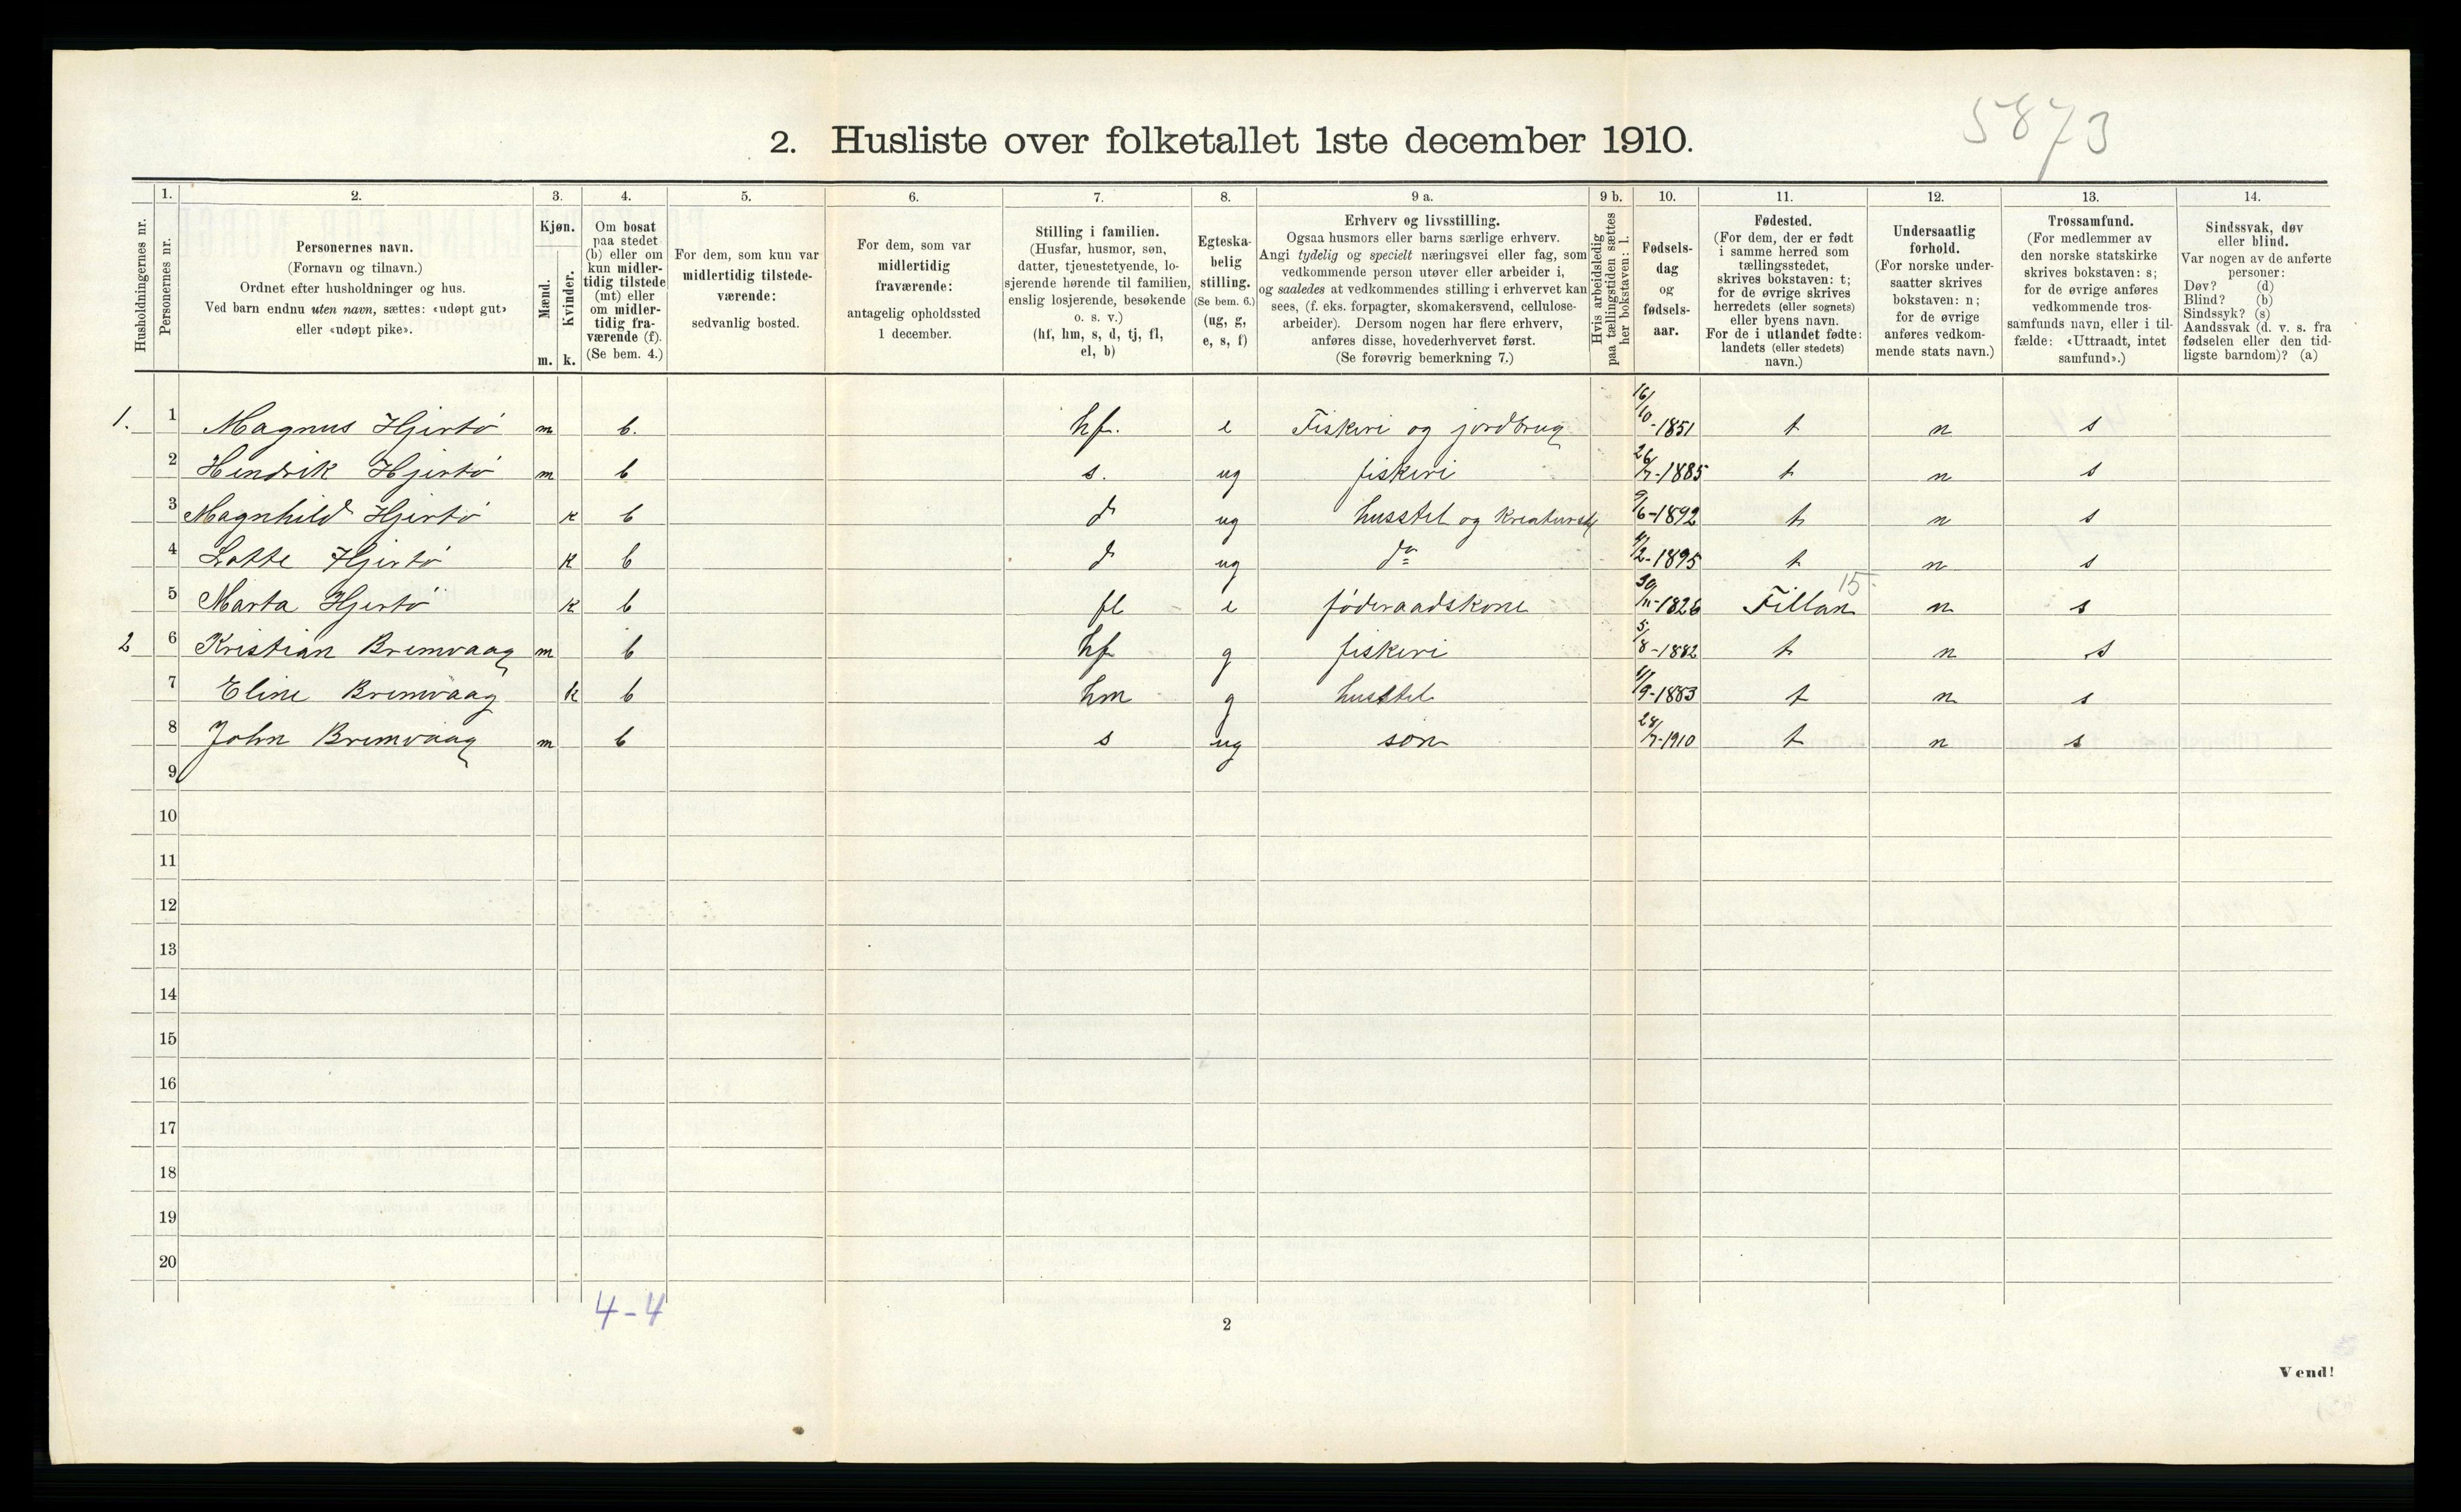 5873
2. Husliste over folketallet 1ste december 1910.
Husholdningernes nr.
1. Personernes nr.
2. Personernes navn.
(Fornavn og tilnavn.)
Ordnet efter husholdninger og hus.
Ved barn endnu uten navn, sættes: «udøpt gut»
eller «udøpt pike».
3. Kjøn.
Mænd. m.
Kvinder. k.
4. Om bosat
paa stedet
(b) eller om
kun midler-
tidig tilstede
(mt) eller
om midler-
tidig fra-
værende (f).
(Se bem. 4.)
5. For dem, som kun var
midlertidig tilstede-
værende:
sedvanlig bosted.
6. For dem, som var
midlertidig
fraværende:
antagelig opholdssted
1 december.
7. Stilling i familien.
(Husfar, husmor, søn,
datter, tjenestetyende, lo-
sjerende hørende til familien,
enslig losjerende, besøkende
o. s. v.)
(hf, hm, s, d, tj, fl,
el, b)
8. Egteska-
belig
stilling.
(Se bem. 6.)
(ug, g,
e, s, f)
9 a. Erhverv og livsstilling.
Ogsaa husmors eller barns særlige erhverv.
Angi tydelig og specielt næringsvei eller fag, som
vedkommende person utøver eller arbeider i,
og saaledes at vedkommendes stilling i erhvervet kan
sees, (f. eks. forpagter, skomakersvend, cellulose-
arbeider). Dersom nogen har flere erhverv,
anføres disse, hovederhvervet først.
(Se forøvrig bemerkning 7.)
9 b. Hvis arbeidsledig
paa tællingstiden sættes
her bokstaven: l.
10. Fødsels-
dag
og
fødsels-
aar.
11. Fødested.
(For dem, der er født
i samme herred som
tællingsstedet,
skrives bokstaven: t;
for de øvrige skrives
herredets (eller sognets)
eller byens navn.
For de i utlandet fødte:
landets (eller stedets)
navn.)
12. Undersaatlig
forhold.
(For norske under-
saatter skrives
bokstaven: n;
for de øvrige
anføres vedkom-
mende stats navn.)
13. Trossamfund.
(For medlemmer av
den norske statskirke
skrives bokstaven: s;
for de øvrige anføres
vedkommende tros-
samfunds navn, eller i til-
fælde: «Uttraadt, intet
samfund».)
14. Sindssvak, døv
eller blind.
Var nogen av de anførte
personer:
Døv? (d)
Blind? (b)
Sindssyk? (s)
Aandssvak (d. v. s. fra
fødselen eller den tid-
ligste barndom)? (a)
1. 1 Magnus Hjertö m b. hf. e Fiskeri og jordbrug 16/10-1851 t n s
2 Hendrik Hjertö m b s. ug fiskeri 26/7-1885 t n s
3 Magnhild Hjertö k b d ug husstel og Kreaturstel 9/6-1892 t n s
4 Lotte Hjertö k b d ug do /2-1895 t n s
5 Marta Hjertö k b fl e föderaadskone 30/11-1826 Fillan 15 n s
2 6 Kristian Bremvaag m b hf g fiskeri 5/8-1882 t n s
7 Eline Bremvaag k b hm g husstel /9-1883 t n s
8 John Bremvaag m b s ug sön 28/7-1910 t n s
9
10
11
12
13
14
15
16
17
18
19
20
4-4
2
Vend!